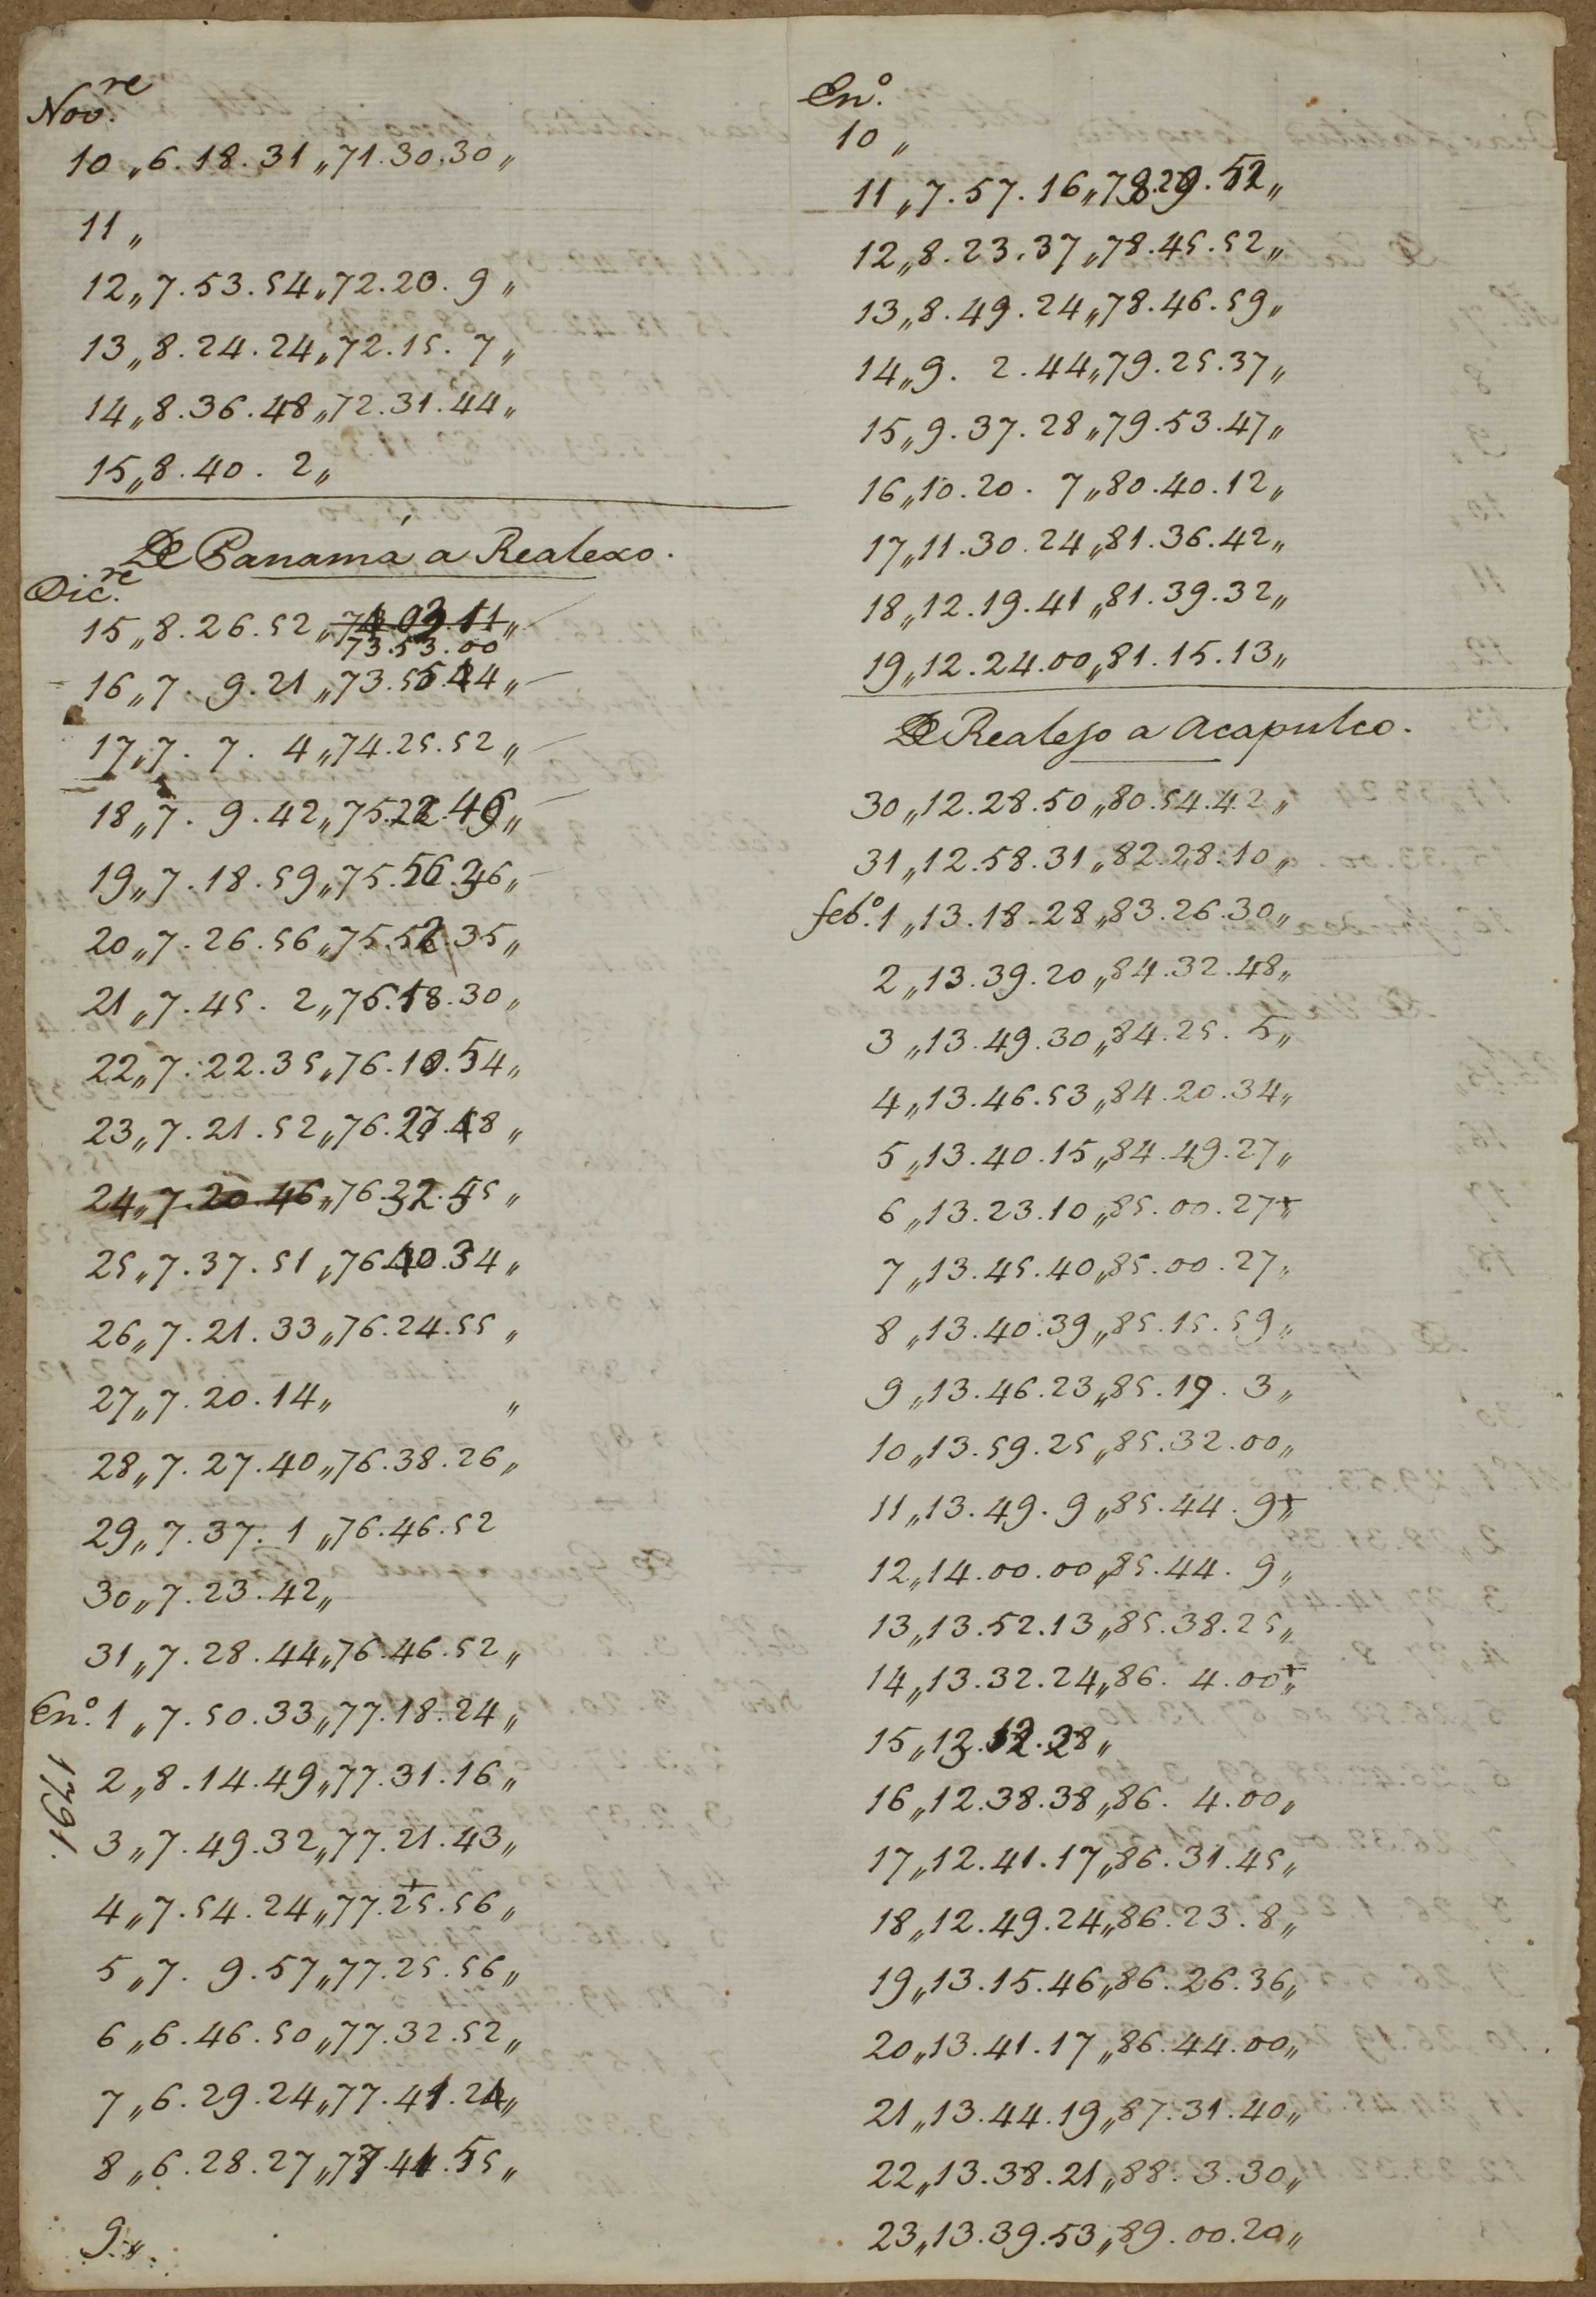 Nov.re
10 „ 6.18.31 „ 71.30.30 „
11 „
12 „ 7.53.54 „ 72.20.9 „
13 „ 8.24.24 „ 72.15.7 „
14 „ 8.36.48 „ 72.31.44 „
15 „ 8.40.2 „
De Panamá a Realexo.
Dic.re
15 „ 8.26.52 „
73.53.00
16 „ 7.9.21 „ 73.
17 „ 7.7.4 „ 74.25.52 „
18 „ 7.9.42 „ 75.
19 „ 7.18.59 „ 75.56.36 „
20 „ 7.26.56 „ 75.52.35 „
21 „ 7.45.2 „ 76.18.30 „
22 „ 7.22.35 „ 76.10.54 „
23 „ 7.21.52 „ 76.27.48 „
24 „ 7.20.46 „ 76.32.45 „
25 „ 7.37.51 „ 76.40.34 „
26 „ 7.21.33 „ 76.24.55 „
27 „ 7.20.14 „ „
28 „ 7.27.40 „ 76.38.26 „
29 „ 7.37.1 „ 76.46.52
30 „ 7.23.42 „
31 „ 7.28.44 „ 76.46.52 „
En.o 1 „ 7.50.33 „ 77.18.24 „
1791.
2 „ 8.14.49 „ 77.31.16 „
3 „ 7.49.32 „ 77.21.43 „
4 „ 7.54.24 „ 77.25.56 „
5 „ 7.9.57 „ 77.25.56 „
6 „ 6.46.50 „ 77.32.52 „
7 „ 6.29.24 „ 77.41.24 „
8 „ 6.28.27 „ 77.44.55 „
9 „
En.o
10 „
11 „ 7.57.16 „ 78.29.52 „
12 „ 8.23.37 „ 78.45.52 „
13 „ 8.49.24 „ 78.46.59 „
14 „ 9.2.44 „ 79.25.37 „
15 „ 9.37.28 „ 79.53.47 „
16 „ 10.20.7 „ 80.40.12 „
17 „ 11.30.24 „ 81.36.42 „
18 „ 12.19.41 „ 81.39.32 „
19 „ 12.24.00 „ 81.15.13 „
De Realejo a Acapulco.
30 „ 12.28.50 „ 80.54.42 „
31 „ 12.58.31 „ 82.28.10 „
feb.o 1 „ 13.18.28 „ 83.26.30 „
2 „ 13.39.20 „ 84.32.48 „
3 „ 13.49.30 „ 84.25.5 „
4 „ 13.46.53 „ 84.20.34 „
5 „ 13.40.15 „ 84.49.27 „
6 „ 13.23.10 „ 85.00.27 + „
7 „ 13.45.40 „ 85.00.27 „
8 „ 13.40.39 „ 85.15.59 „
9 „ 13.46.23 „ 85.19.3 „
10 „ 13.59.25 „ 85.32.00 „
11 „ 13.49.9 „ 85.44.9 + „
12 „ 14.00.00 „ 85.44.9 „
13 „ 13.52.13 „ 85.38.25 „
14 „ 13.32.24 „ 86.4.00 + „
15 „
16 „ 12.38.38 „ 86.4.00 „
17 „ 12.41.17 „ 86.31.45 „
18 „ 12.49.24 „ 86.23.8 „
19 „ 13.15.46 „ 86.26.36 „
20 „ 13.41.17 „ 86.44.00 „
21 „ 13.44.19 „ 87.31.40 „
22 „ 13.38.21 „ 88.3.30 „
23 „ 13.39.53 „ 89.00.20 „